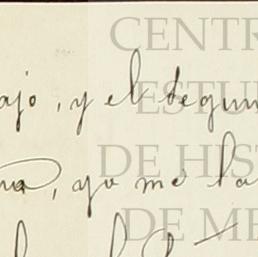 CENTR
ajo, y el segun
ESTU
DE HIST
, yo me la
DE ME